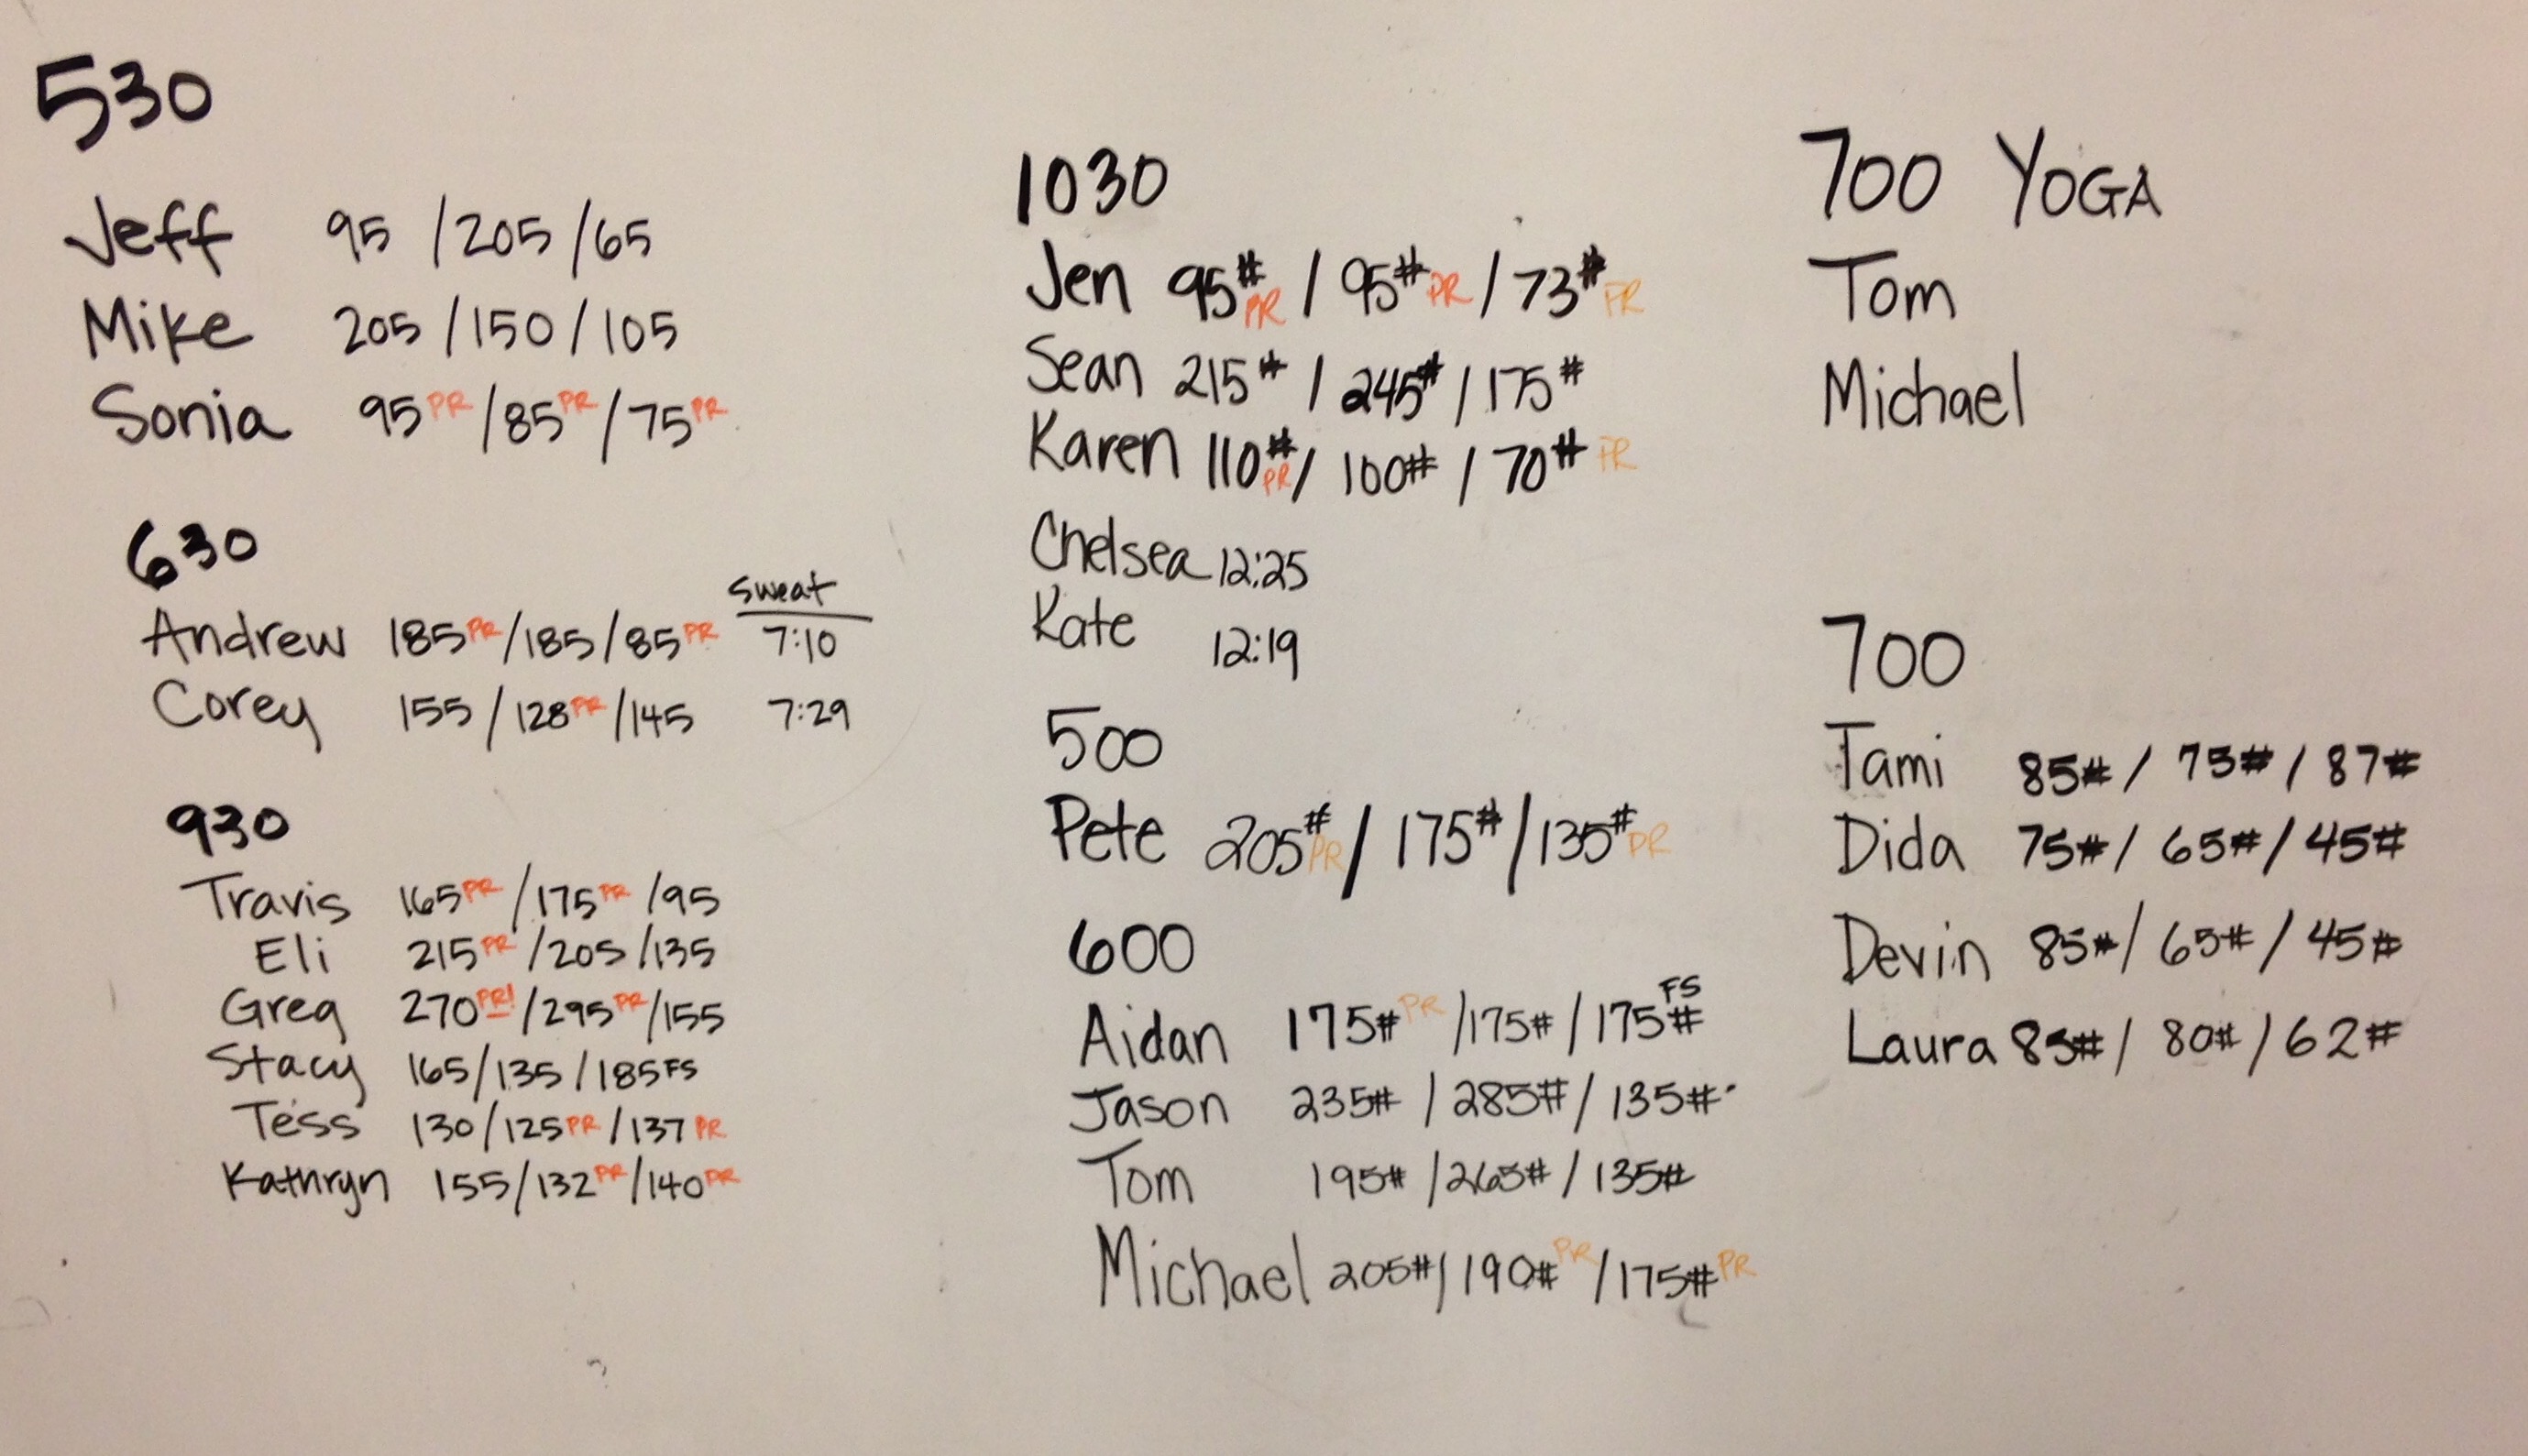 530
Jeff 95 / 205 / 65
Mike 205 / 150 / 105
Sonia 95 PR / 85 PR / 75 PR
630
Sweat
Andrew 185 PR / 185 / 85 PR 7:10
Corey 155 / 128 PR / 145 7:29
930
Travis 165 PR / 175 PR / 95
Eli 215 PR / 205 / 135
Greg 270 PR! / 295 PR / 155
Stacy 165 / 135 / 185 FS
Tess 130 / 125 PR / 137 PR
Kathryn 155 / 132 PR / 140 PR
1030
Jen 95# PR / 95# PR / 73# PR
Sean 215# / 245# / 175#
Karen 110# PR / 100# / 70# PR
Chelsea 12:25
Kate 12:19
500
Pete 205# PR / 175# / 135# PR
600
Aidan 175# PR / 175# / 175# FS
Jason 235# / 285# / 135#
Tom 195# / 265# / 135#
Michael 205# / 190# PR / 175# PR
700 YOGA
Tom
Michael
700
Tami 85# / 75# / 87#
Dida 75# / 65# / 45#
Devin 85# / 65# / 45#
Laura 85# / 80# / 62#